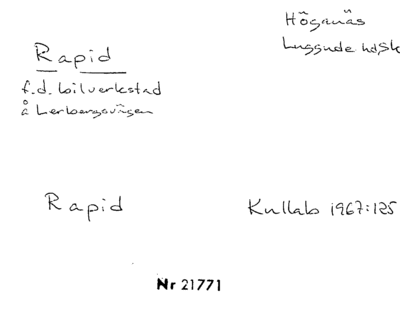 Höganäs
Luggude hd Sk
Rapid
f.d. bilverkstad
å Lerbergsvägen
Rapid
Kullab 1967:125
Nr 21771